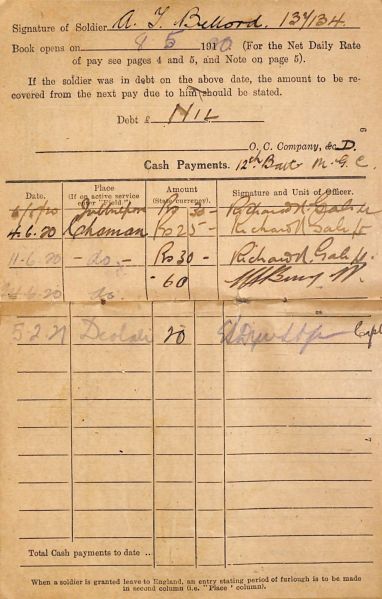 Signature of Soldier A. J. Bellord. 134134.
Book opens on 8 5 1920 (For the Net Daily Rate
of pay see pages 4 and 5, and Note on page 5).
If the soldier was in debt on the above date, the amount to be re-
covered from the next pay due to him should be stated.
Debt £ NIL
O. C. Company, &c D.
Cash Payments. 12th Batt M.G.C.
Date. Place (If on active service "Field".) Amount (State currency). Signature and Unit of Officer.
Rs 30 - Richard
4.6.20 Chaman Rs 25 - Richard
11.6.20 - do - Rs 30 - Richard
6.20 do. 60
5.2.21 Deolali 20 Capt
Total Cash payments to date ...
When a soldier is granted leave to England, an entry stating period of furlough is to be made
in second column (i.e. "Place" column).